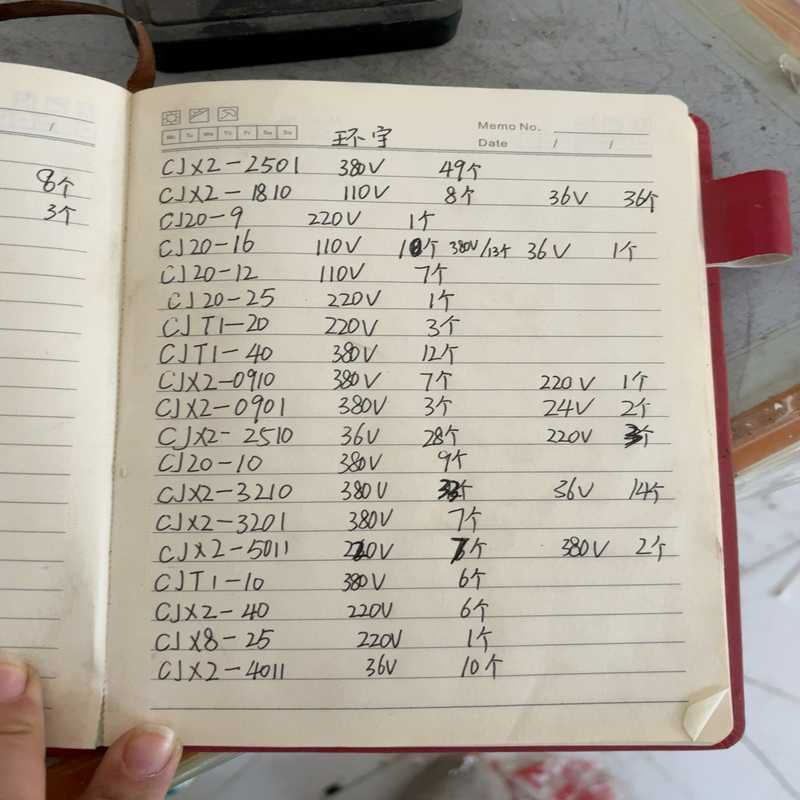 8个
3个
Memo No.
Mo Tu We Th Fr Sa Su
Date / /
环宇
CJX2-2501 380V 49个
CJX2-1810 110V 8个 36V 36个
CJ20-9 220V 1个
CJ20-16 110V 个 380V/13个 36V 1个
CJ20-12 110V 7个
CJ20-25 220V 1个
CJT1-20 220V 3个
CJT1-40 380V 12个
CJX2-0910 380V 7个 220V 1个
CJX2-0901 380V 3个 24V 2个
CJX2-2510 36V 28个 220V 3个
CJ20-10 380V 9个
CJX2-3210 380V 个 36V 14个
CJX2-3201 380V 7个
CJX2-5011 220V 个 380V 2个
CJT1-10 380V 6个
CJX2-40 220V 6个
CJX8-25 220V 1个
CJX2-4011 36V 10个